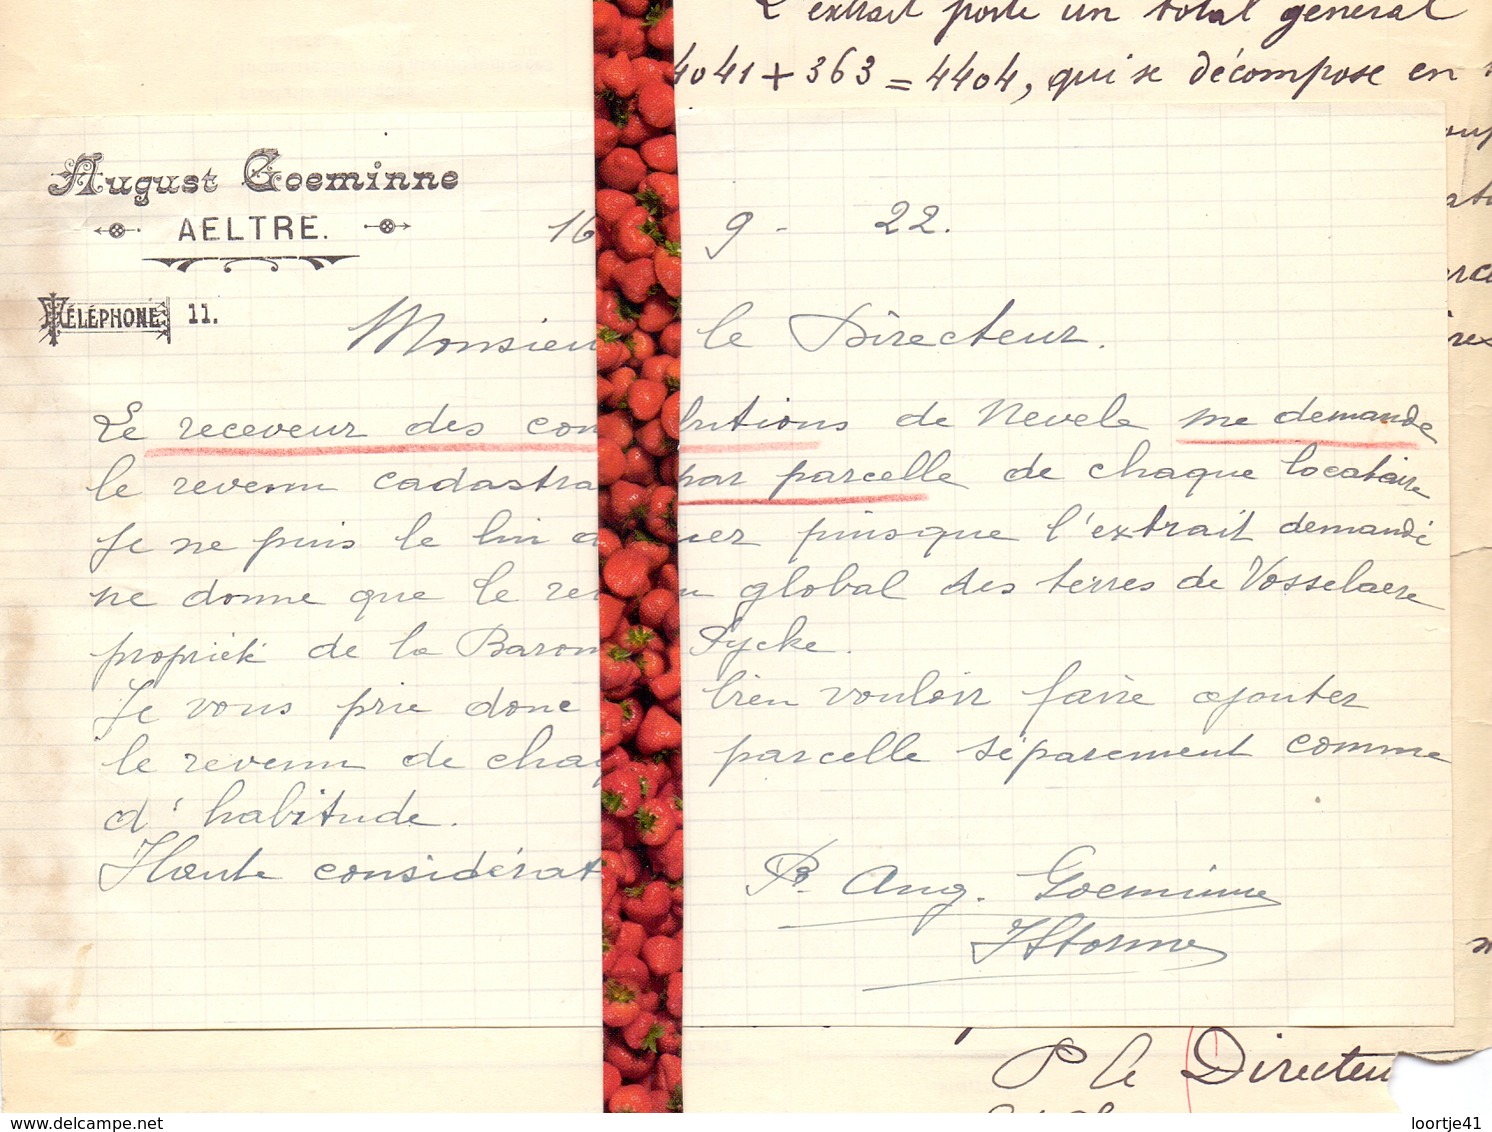 L'extrait porte un total général
4041 + 363 = 4404, qui se décompose en
August Goeminne
AELTRE.
TÉLÉPHONE 11.
16 9 - 22.
Monsieu le Directeur.
Le receveur des con butions de Nevele me demande
le revenu cadastra par parcelle de chaque locataire
Je ne puis le lui uer puisque l'extrait demandé
ne donne que le re global des terres de Vosselaere
propriété de la Baron Pycke.
Je vous prie donc bien vouloir faire ajouter
le revenu de cha parcelle séparement comme
d'habitude.
Haute considérat
Pr. Aug. Goeminne
P le Directeu
loortje41
www.delcampe.net